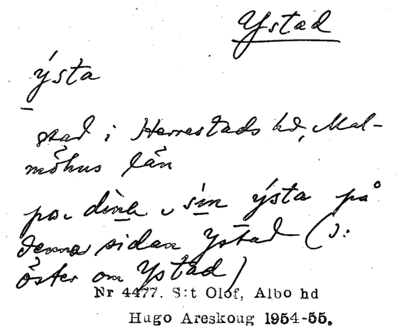 Ystad
ýsta
stad i Herrestads hd, Mal-
möhus län
pa sin ýsta på
denna sidan Ystad (ɔ:
öster om Ystad)
Nr 4477. S:t Olof, Albo hd
Hugo Areskoug 1954-55.